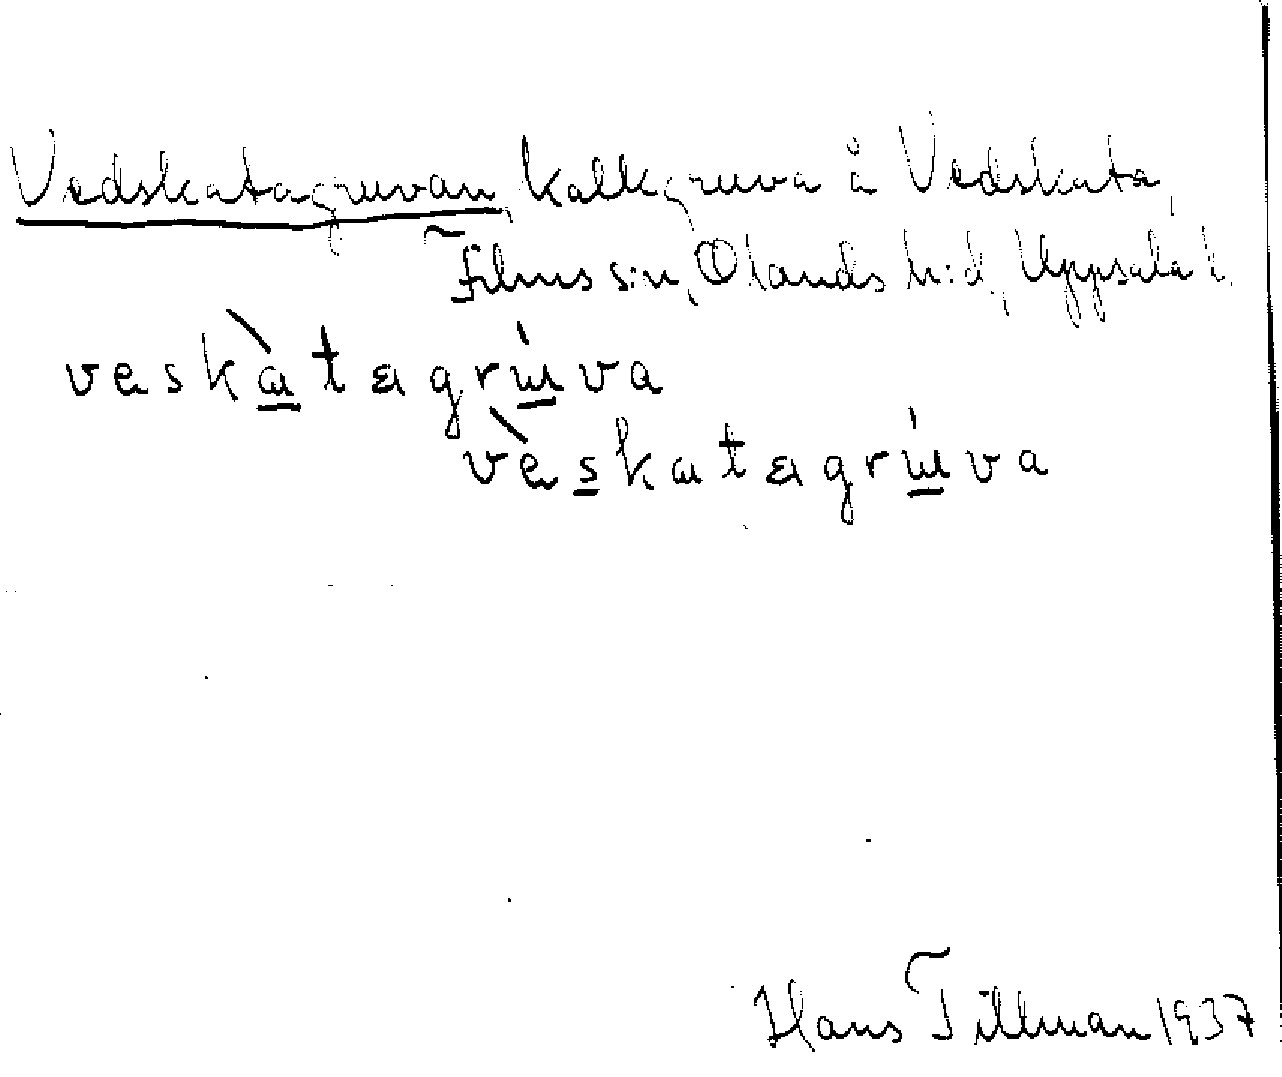 Vedskatagruvan, kalkgruva å Vedskata,
Films s:n, Olands h:d, Uppsala l.
veskàtagrúva
vèskatagrúva
Hans Tillman 1937